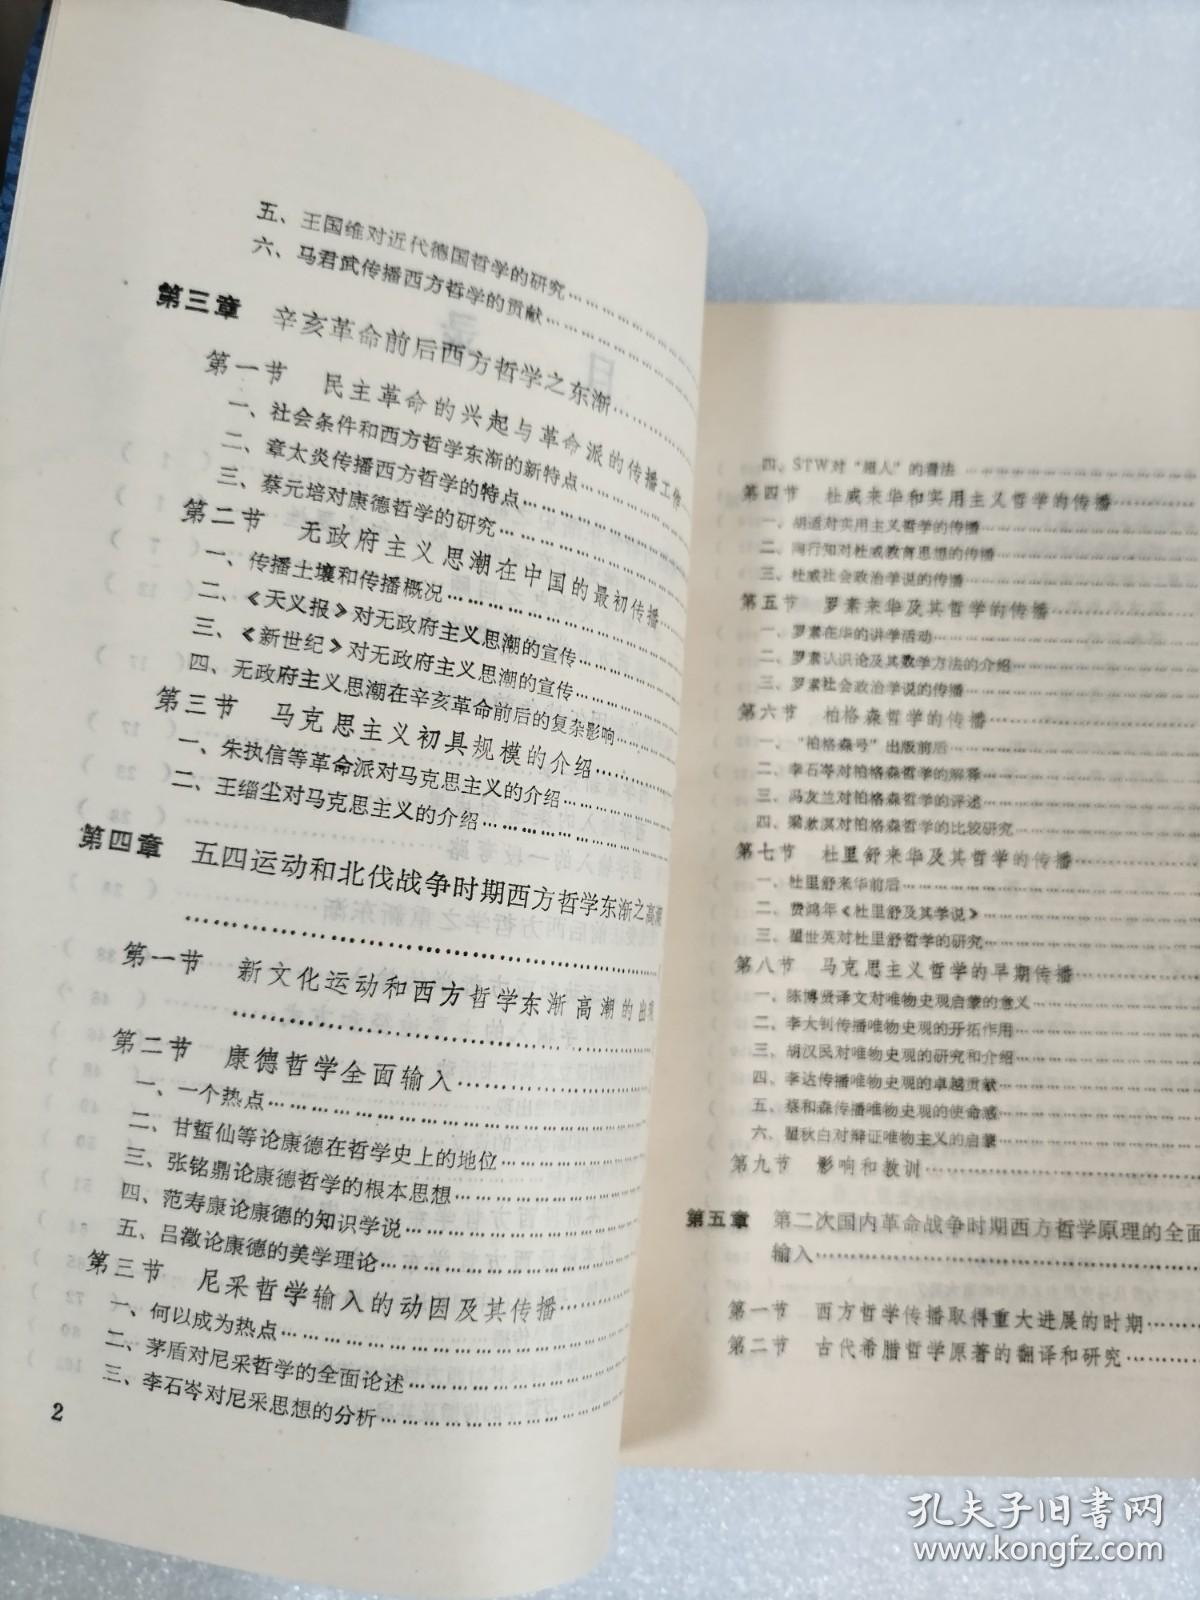 五、王国维对近代德国哲学的研究
六、马君武传播西方哲学的贡献
第三章 辛亥革命前后西方哲学之东渐
第一节 民主革命的兴起与革命派的传播工作
一、社会条件和西方哲学东渐的新特点
二、章太炎传播西方哲学的特点
三、蔡元培对康德哲学的研究
第二节 无政府主义思潮在中国的最初传播
一、传播土壤和传播概况
二、《天义报》对无政府主义思潮的宣传
三、《新世纪》对无政府主义思潮的宣传
四、无政府主义思潮在辛亥革命前后的复杂影响
第三节 马克思主义初具规模的介绍
一、朱执信等革命派对马克思主义的介绍
二、王缁尘对马克思主义的介绍
第四章 五四运动和北伐战争时期西方哲学东渐之高潮
第一节 新文化运动和西方哲学东渐高潮的出现
第二节 康德哲学全面输入
一、一个热点
二、甘蛰仙等论康德在哲学史上的地位
三、张铭鼎论康德哲学的根本思想
四、范寿康论康德的知识学说
五、吕澂论康德的美学理论
第三节 尼采哲学输入的动因及其传播
一、何以成为热点
二、茅盾对尼采哲学的全面论述
三、李石岑对尼采思想的分析
2
四、STW对“超人”的看法
第四节 杜威来华和实用主义哲学的传播
一、胡适对实用主义哲学的传播
二、陶行知对杜威教育思想的传播
三、杜威社会政治学说的传播
第五节 罗素来华及其哲学的传播
一、罗素在华的讲学活动
二、罗素认识论及其数学方法的介绍
三、罗素社会政治学说的传播
第六节 柏格森哲学的传播
一、“柏格森号”出版前后
二、李石岑对柏格森哲学的解释
三、冯友兰对柏格森哲学的评述
四、梁漱溟对柏格森哲学的比较研究
第七节 杜里舒来华及其哲学的传播
一、杜里舒来华前后
二、费鸿年《杜里舒及其学说》
三、瞿世英对杜里舒哲学的研究
第八节 马克思主义哲学的早期传播
一、陈博贤译文对唯物史观启蒙的意义
二、李大钊传播唯物史观的开拓作用
三、胡汉民对唯物史观的研究和介绍
四、李达传播唯物史观的卓越贡献
五、蔡和森传播唯物史观的使命感
六、瞿秋白对辩证唯物主义的启蒙
第九节 影响和教训
第五章 第二次国内革命战争时期西方哲学原理的全面
输入
第一节 西方哲学传播取得重大进展的时期
第二节 古代希腊哲学原著的翻译和研究
孔夫子旧书网
www.kongfz.com